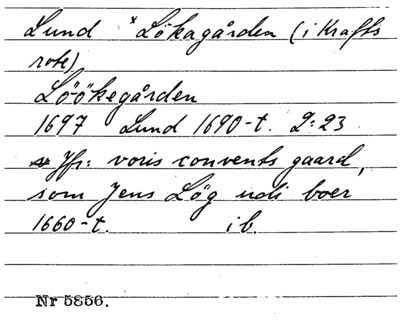 Lund x Lökagården (i Krafts
rote)
Löökegården
1697 Lund 1690-t. 2:23
Jfr: voris convents gaard,
som Jens Lög udi boer
1660-t. ib.
Nr 5856.